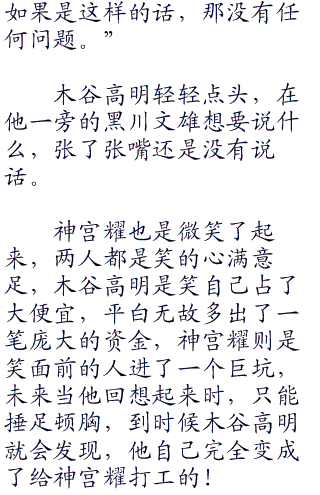 如果是这样的话，那没有任
何问题。”
木谷高明轻轻点头，在
他一旁的黑川文雄想要说什
么，张了张嘴还是没有说
话。
神宫耀也是微笑了起
来，两人都是笑的心满意
足，木谷高明是笑自己占了
大便宜，平白无故多出了一
笔庞大的资金，神宫耀则是
笑面前的人进了一个巨坑，
未来当他回想起来时，只能
捶足顿胸，到时候木谷高明
就会发现，他自己完全变成
了给神宫耀打工的！